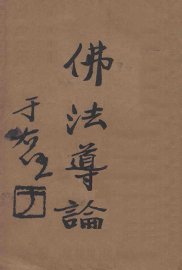 佛法導論
于右任